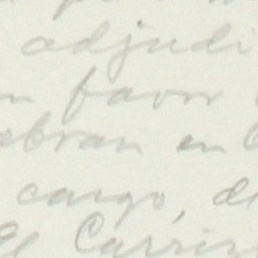 adjudi
n favor
ebran en C
cargo, de
El Carrir